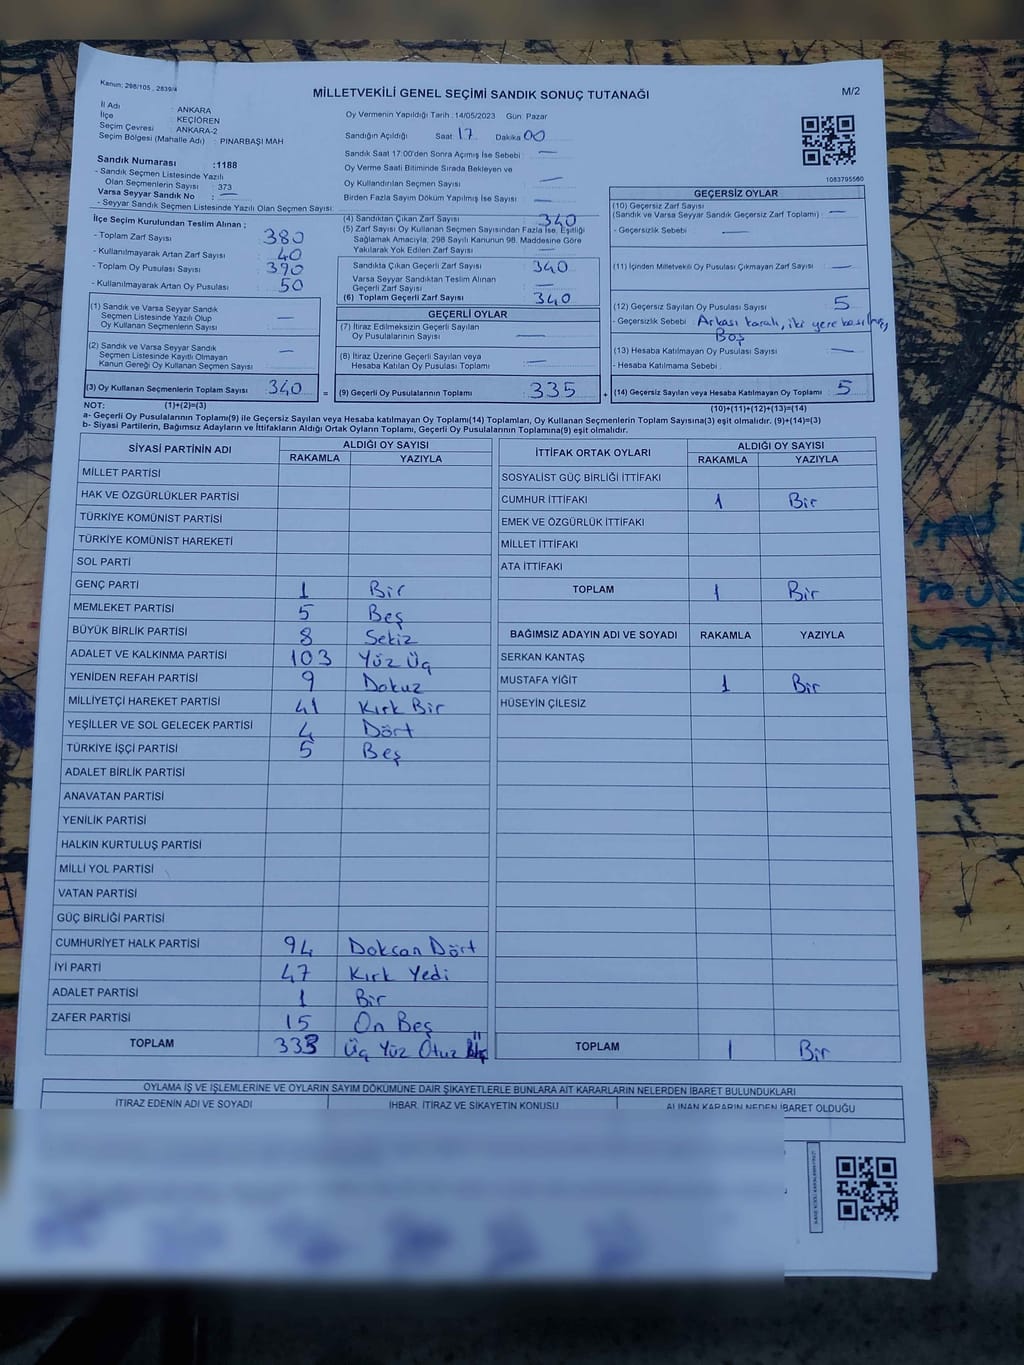 Kanun; 298/105 , 2839/4
MİLLETVEKİLİ GENEL SEÇİMİ SANDIK SONUÇ TUTANAĞI
M/2
İl Adı : ANKARA
İlçe : KEÇİÖREN
Seçim Çevresi : ANKARA-2
Seçim Bölgesi (Mahalle Adı) : PINARBAŞI MAH
Sandık Numarası :1188
- Sandık Seçmen Listesinde Yazılı
Olan Seçmenlerin Sayısı : 373
Varsa Seyyar Sandık No : —
- Seyyar Sandık Seçmen Listesinde Yazılı Olan Seçmen Sayısı:
Oy Vermenin Yapıldığı Tarih : 14/05/2023 Gün: Pazar
Sandığın Açıldığı Saat 17 Dakika 00
Sandık Saat 17:00'den Sonra Açımış İse Sebebi : —
Oy Verme Saati Bitiminde Sırada Bekleyen ve
Oy Kullandırılan Seçmen Sayısı : —
Birden Fazla Sayım Döküm Yapılmış İse Sayısı : —
1083795560
İlçe Seçim Kurulundan Teslim Alınan ;
- Toplam Zarf Sayısı : 380
- Kullanılmayarak Artan Zarf Sayısı : 40
- Toplam Oy Pusulası Sayısı : 390
- Kullanılmayarak Artan Oy Pusulası : 50
(1) Sandık ve Varsa Seyyar Sandık
Seçmen Listesinde Yazılı Olup
Oy Kullanan Seçmenlerin Sayısı : —
(2) Sandık ve Varsa Seyyar Sandık
Seçmen Listesinde Kayıtlı Olmayan
Kanun Gereği Oy Kullanan Seçmen Sayısı : —
(3) Oy Kullanan Seçmenlerin Toplam Sayısı : 340
(4) Sandıktan Çıkan Zarf Sayısı : 340
(5) Zarf Sayısı Oy Kullanan Seçmen Sayısından Fazla İse, Eşitliği
Sağlamak Amacıyla; 298 Sayılı Kanunun 98. Maddesine Göre
Yakılarak Yok Edilen Zarf Sayısı : —
Sandıkta Çıkan Geçerli Zarf Sayısı : 340
Varsa Seyyar Sandıktan Teslim Alınan
Geçerli Zarf Sayısı : —
(6) Toplam Geçerli Zarf Sayısı : 340
GEÇERLİ OYLAR
(7) İtiraz Edilmeksizin Geçerli Sayılan
Oy Pusulalarının Sayısı : —
(8) İtiraz Üzerine Geçerli Sayılan veya
Hesaba Katılan Oy Pusulası Toplamı : —
= (9) Geçerli Oy Pusulalarının Toplamı : 335
GEÇERSİZ OYLAR
(10) Geçersiz Zarf Sayısı
(Sandık ve Varsa Seyyar Sandık Geçersiz Zarf Toplamı) : —
- Geçersizlik Sebebi : —
(11) İçinden Milletvekili Oy Pusulası Çıkmayan Zarf Sayısı : —
(12) Geçersiz Sayılan Oy Pusulası Sayısı : 5
- Geçersizlik Sebebi : Arkası karalı, iki yere basılmış,
Boş
(13) Hesaba Katılmayan Oy Pusulası Sayısı : —
- Hesaba Katılmama Sebebi :
+ (14) Geçersiz Sayılan veya Hesaba Katılmayan Oy Toplamı : 5
NOT: (1)+(2)=(3)
(10)+(11)+(12)+(13)=(14)
a- Geçerli Oy Pusulalarının Toplamı(9) ile Geçersiz Sayılan veya Hesaba katılmayan Oy Toplamı(14) Toplamları, Oy Kullanan Seçmenlerin Toplam Sayısına(3) eşit olmalıdır. (9)+(14)=(3)
b- Siyasi Partilerin, Bağımsız Adayların ve İttifakların Aldığı Ortak Oyların Toplamı, Geçerli Oy Pusulalarının Toplamına(9) eşit olmalıdır.
SİYASİ PARTİNİN ADI ALDIĞI OY SAYISI
RAKAMLA YAZIYLA
MİLLET PARTİSİ
HAK VE ÖZGÜRLÜKLER PARTİSİ
TÜRKİYE KOMÜNİST PARTİSİ
TÜRKİYE KOMÜNİST HAREKETİ
SOL PARTİ
GENÇ PARTİ 1 Bir
MEMLEKET PARTİSİ 5 Beş
BÜYÜK BİRLİK PARTİSİ 8 Sekiz
ADALET VE KALKINMA PARTİSİ 103 Yüz Üç
YENİDEN REFAH PARTİSİ 9 Dokuz
MİLLİYETÇİ HAREKET PARTİSİ 41 Kırk Bir
YEŞİLLER VE SOL GELECEK PARTİSİ 4 Dört
TÜRKİYE İŞÇİ PARTİSİ 5 Beş
ADALET BİRLİK PARTİSİ
ANAVATAN PARTİSİ
YENİLİK PARTİSİ
HALKIN KURTULUŞ PARTİSİ
MİLLİ YOL PARTİSİ
VATAN PARTİSİ
GÜÇ BİRLİĞİ PARTİSİ
CUMHURİYET HALK PARTİSİ 94 Doksan Dört
İYİ PARTİ 47 Kırk Yedi
ADALET PARTİSİ 1 Bir
ZAFER PARTİSİ 15 On Beş
TOPLAM 333 Üç Yüz Otuz Üç
İTTİFAK ORTAK OYLARI ALDIĞI OY SAYISI
RAKAMLA YAZIYLA
SOSYALİST GÜÇ BİRLİĞİ İTTİFAKI
CUMHUR İTTİFAKI 1 Bir
EMEK VE ÖZGÜRLÜK İTTİFAKI
MİLLET İTTİFAKI
ATA İTTİFAKI
TOPLAM 1 Bir
BAĞIMSIZ ADAYIN ADI VE SOYADI RAKAMLA YAZIYLA
SERKAN KANTAŞ
MUSTAFA YİĞİT 1 Bir
HÜSEYİN ÇİLESİZ
TOPLAM 1 Bir
OYLAMA İŞ VE İŞLEMLERİNE VE OYLARIN SAYIM DÖKÜMÜNE DAİR ŞİKAYETLERLE BUNLARA AİT KARARLARIN NELERDEN İBARET BULUNDUKLARI
İTİRAZ EDENİN ADI VE SOYADI İHBAR, İTİRAZ VE ŞİKAYETİN KONUSU ALINAN KARARIN NEDEN İBARET OLDUĞU